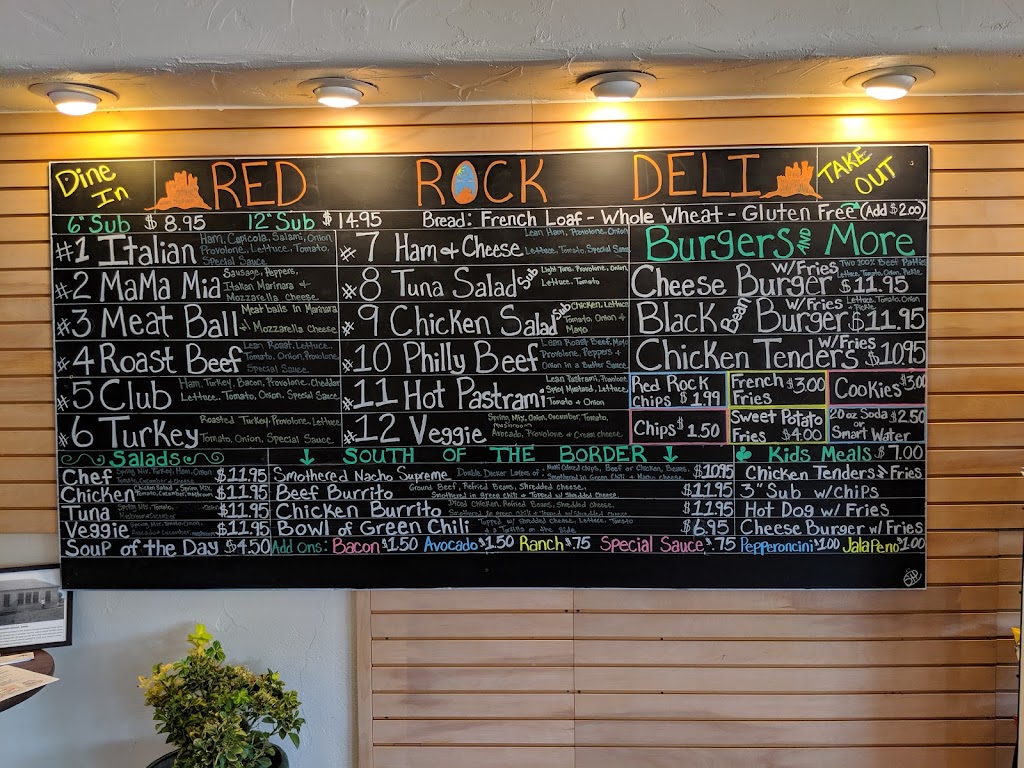 Dine In
RED ROCK DELI
TAKE OUT
6" Sub $8.95 12" Sub $14.95 Bread: French Loaf - Whole Wheat - Gluten Free (Add $2.00)
#1 Italian
Ham, Capicola, Salami, Onion
Provolone, Lettuce, Tomato
Special Sauce
#2 MaMa Mia
Sausage, Peppers,
Italian Marinara &
Mozzarella Cheese
#3 Meat Ball
Meat balls in Marinara
& Mozzarella Cheese
#4 Roast Beef
Lean Roast, Lettuce,
Tomato, Onion, Provolone,
Special Sauce
#5 Club
Ham, Turkey, Bacon, Provolone, Cheddar
Lettuce, Tomato, Onion, Special Sauce
#6 Turkey
Roasted Turkey, Provolone, Lettuce
Tomato, Onion, Special Sauce
#7 Ham & Cheese
Lean Ham, Provolone, Onion
Lettuce, Tomato, Special Sauce
#8 Tuna Salad Sub
Light Tuna, Provolone, Onion,
Lettuce, Tomato
#9 Chicken Salad Sub
Chicken, Lettuce
Tomato, Onion &
Mayo
#10 Philly Beef
Lean Roast Beef, Mayo
Provolone, Peppers &
Onion in a Butter Sauce
#11 Hot Pastrami
Lean Pastrami, Provolone,
Spicy Mustard, Lettuce,
Tomato & Onion
#12 Veggie
Spring Mix, Onion, Cucumber, Tomato,
Mushroom
Avocado, Provolone & Cream cheese
Burgers AND More
Cheese Burger w/Fries $11.95
Two 100% Beef Patties
Lettuce, Tomato, Onion, Pickle
Black Bean Burger w/Fries $11.95
Lettuce, Tomato, Onion
Chicken Tenders w/Fries $10.95
Red Rock Chips $1.99
French Fries $3.00
Cookies $3.00
Chips $1.50
Sweet Potato Fries $4.00
20oz Soda or Smart Water $2.50
Salads
Chef Spring Mix, Turkey, Ham, Onion $11.95
Chicken $11.95
Tuna $11.95
Veggie $11.95
Soup of the Day $4.50
SOUTH OF THE BORDER
Smothered Nacho Supreme $10.95
Double Decker Layers of: Multi Colored chips, Beef or Chicken, Beans,
Smothered in Green chili & Nacho cheese
Beef Burrito $11.95
Ground Beef, Refried Beans, Shredded cheese,
Smothered in Green chili & Topped w/ Shredded Cheese
Chicken Burrito $11.95
Diced Chicken, Refried Beans, Shredded cheese,
Smothered in Green chili & Topped w/ Shredded Cheese
Bowl of Green Chili $6.95
Topped w/ Shredded cheese, Lettuce, Tomato
Tortilla on the Side
Kids Meals $7.00
Chicken Tenders & Fries
3" Sub w/chips
Hot Dog w/ Fries
Cheese Burger w/ Fries
Add Ons: Bacon $1.50 Avocado $1.50 Ranch $.75 Special Sauce $.75 Pepperoncini $1.00 Jalapeno $1.00